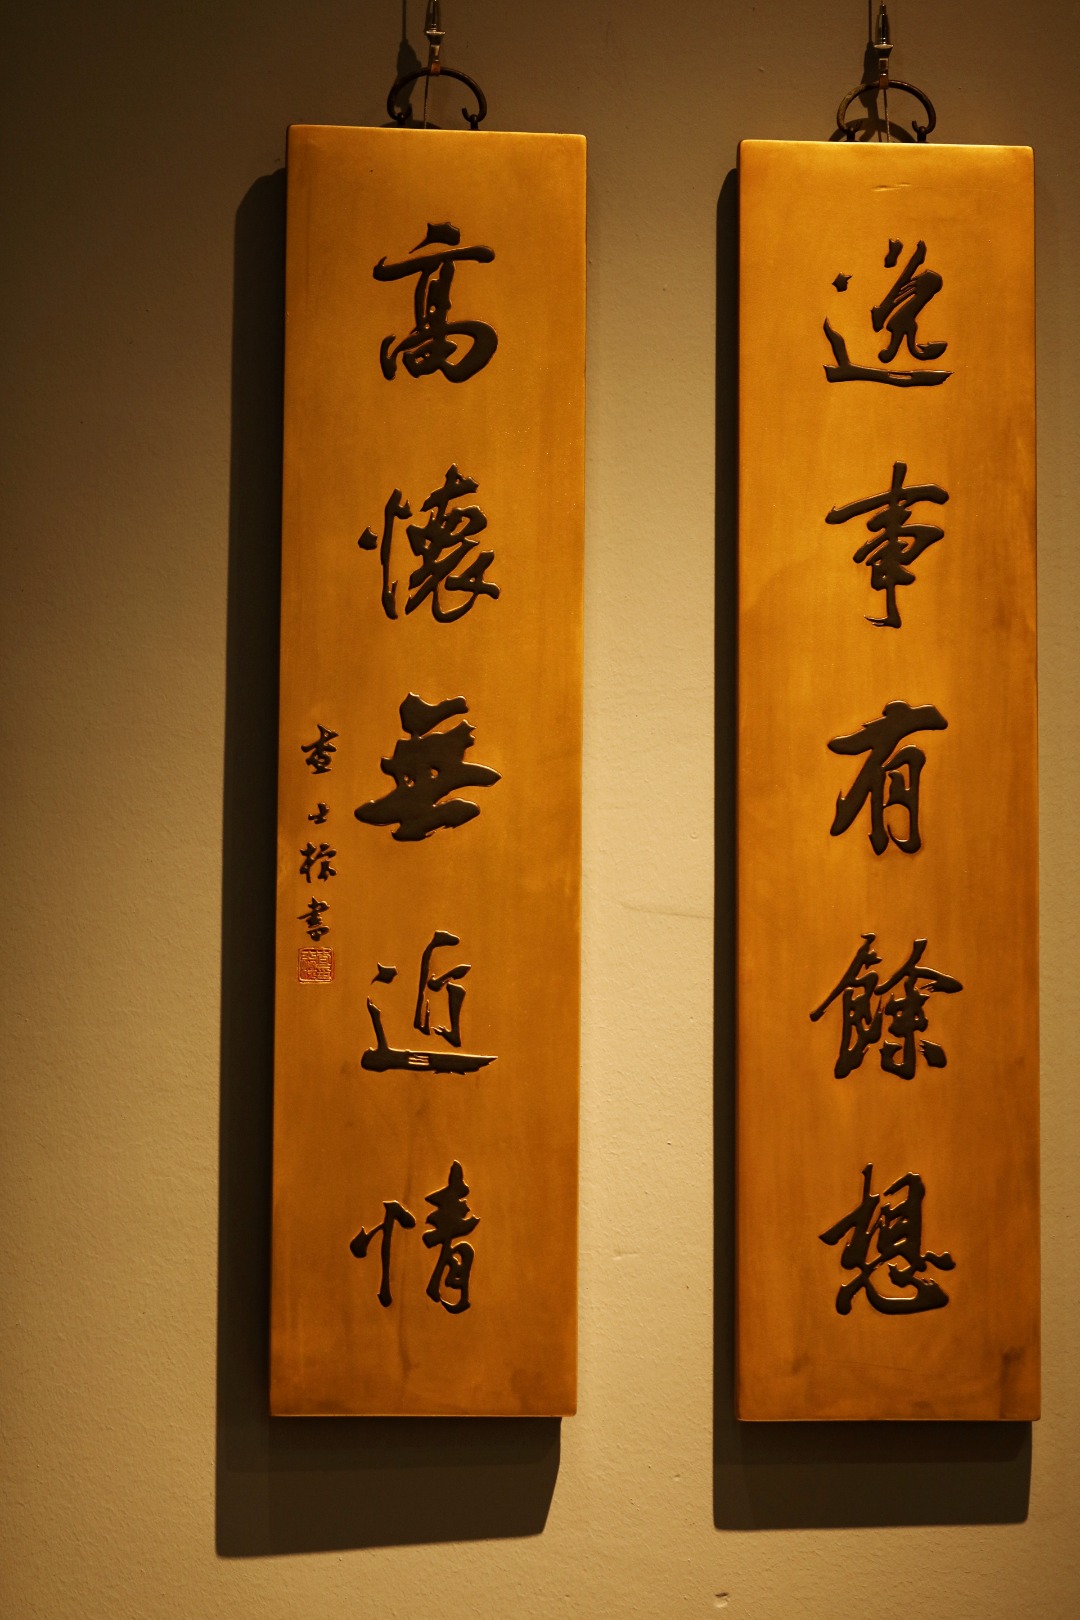 逸事有餘想
高懷無近情
查士標書